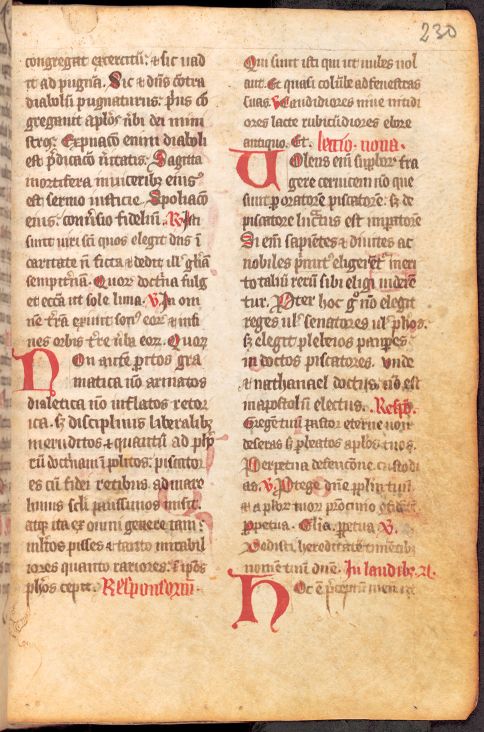 230
congregat exercitū: ⁊ sic uad
it ad pugnā. Sic ⁊ dn̄s cōtra
diabolū pugnaturus: p̄us cō
gregauit ap̄los ubi dei mini
stros. Expliaco enim diaboli
est p̄dicaco ūitatis. Sagitta
mortifera in uisceribꝫ eius
est sermo iusticie. Spoliaco
eius. conūsio fidelium. R. Isti
sunt uiri sc̄i quos elegit dn̄s ī
caritate n̄ ficta ⁊ dedit ill' gl'iā
sempitnā. Quoꝝ doct'na fulg
et ecc̄a ut sole luna. V. In om
nē tr̄a exiuit son' eoꝝ ⁊ in fi
nes orbis tr̄e ūba eoꝝ. Quoꝝ
Non autē p̄itos gra
matica nō armatos
dialetica nō inflatos retor
ica. sꝫ disciplinis liberalibꝫ
ineruditos ⁊ quantū ad ph'o
rū doct'nam īpolitos. piscator
es cū fidei retibus ad mare
huius sc̄li paucissimos misit.
atqꝫ ita ex omni genere tam
mltos pisces ⁊ tanto mirabil
iores quanto rariores. ēt ipos
ph'os cepit. Responsorium.
Qui sunt isti qui ut nubes uol
ant. Et quasi colūbe ad fenestras
suas. V. Candidiores niue nitidi
ores lacte rubicūdiores ebore
antiquo. Et. lectio nona.
Volens eni superboꝝ fra
gere ceruicem nō que
siuit p oratorem piscatorē: sꝫ de
piscatore lucratus est imperatorē
Si eni sapiētes ⁊ diuites ac
nobiles p̄mit' eligerēt' meri
to taliū rerū sibi eligi uiderē
tur. Pter hoc g° nō elegit
reges ul' senatores ul' ph'os.
sꝫ elegit plebeios paupes
indoctos piscatores. Vnde
⁊ nathanael doctus nō est
in apostolū electus. Respō.
Gregē tuū pastor eterne non
deseras sꝫ p beatos ap̄los tuos.
Perpetua defensione custodi
as. V. Protege dn̄e pplm tuū
⁊ ap̄lor tuoꝝ p̄ocinio
perpetua. Gl'ia. perpetua V.
Dedisti hereditatē timētibꝫ
nomen tuū dn̄e. In laudibꝫ. a.
Hoc ē p̄ceptum meū